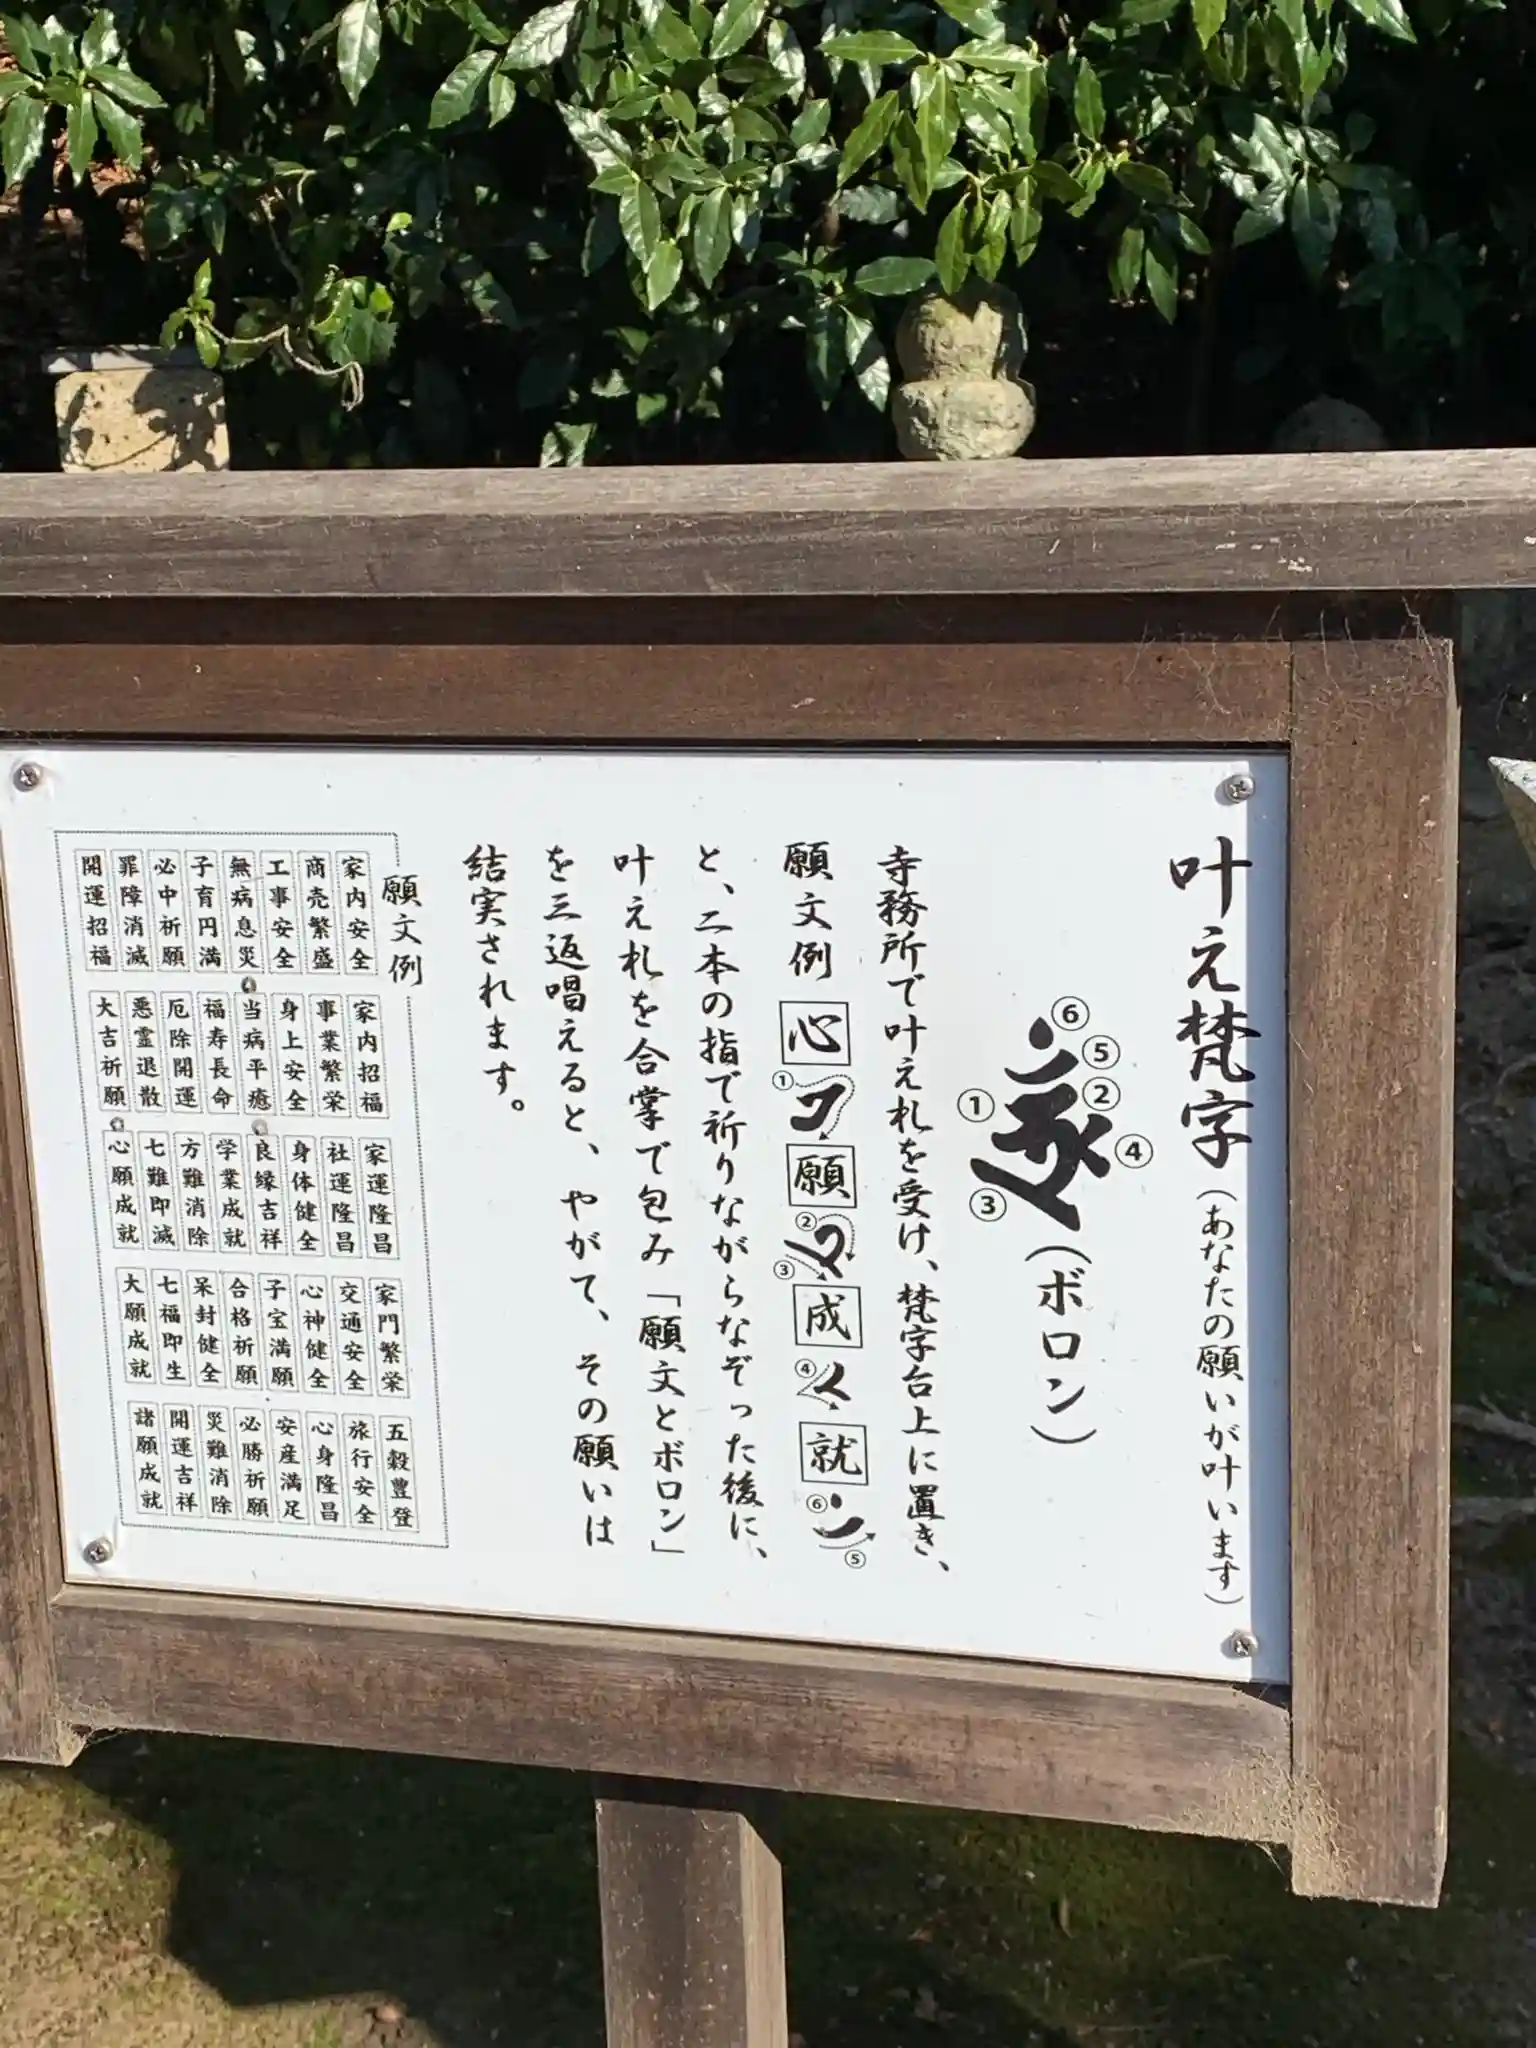 叶え梵字(あなたの願いが叶います)
⑥
⑤
②
①
④
③
(ボロン)
寺務所で叶え札を受け、梵字台上に置き、
願文例 心 ① 願 ② ③ 成 ④ 就 ⑥ ⑤
と、二本の指で祈りながらなぞった後に、
叶え札を合掌で包み「願文とボロン」
を三返唱えると、やがて、その願いは
結実されます。
願文例
家内安全 家内招福 家運隆昌 家門繁栄 五穀豊登
商売繁盛 事業繁栄 社運隆昌 交通安全 旅行安全
工事安全 身上安全 身体健全 心神健全 心身隆昌
無病息災 当病平癒 良縁吉祥 子宝満願 安産満足
子育円満 福寿長命 学業成就 合格祈願 必勝祈願
必中祈願 厄除開運 方難消除 呆封健全 災難消除
罪障消滅 悪霊退散 七難即滅 七福即生 開運吉祥
開運招福 大吉祈願 心願成就 大願成就 諸願成就